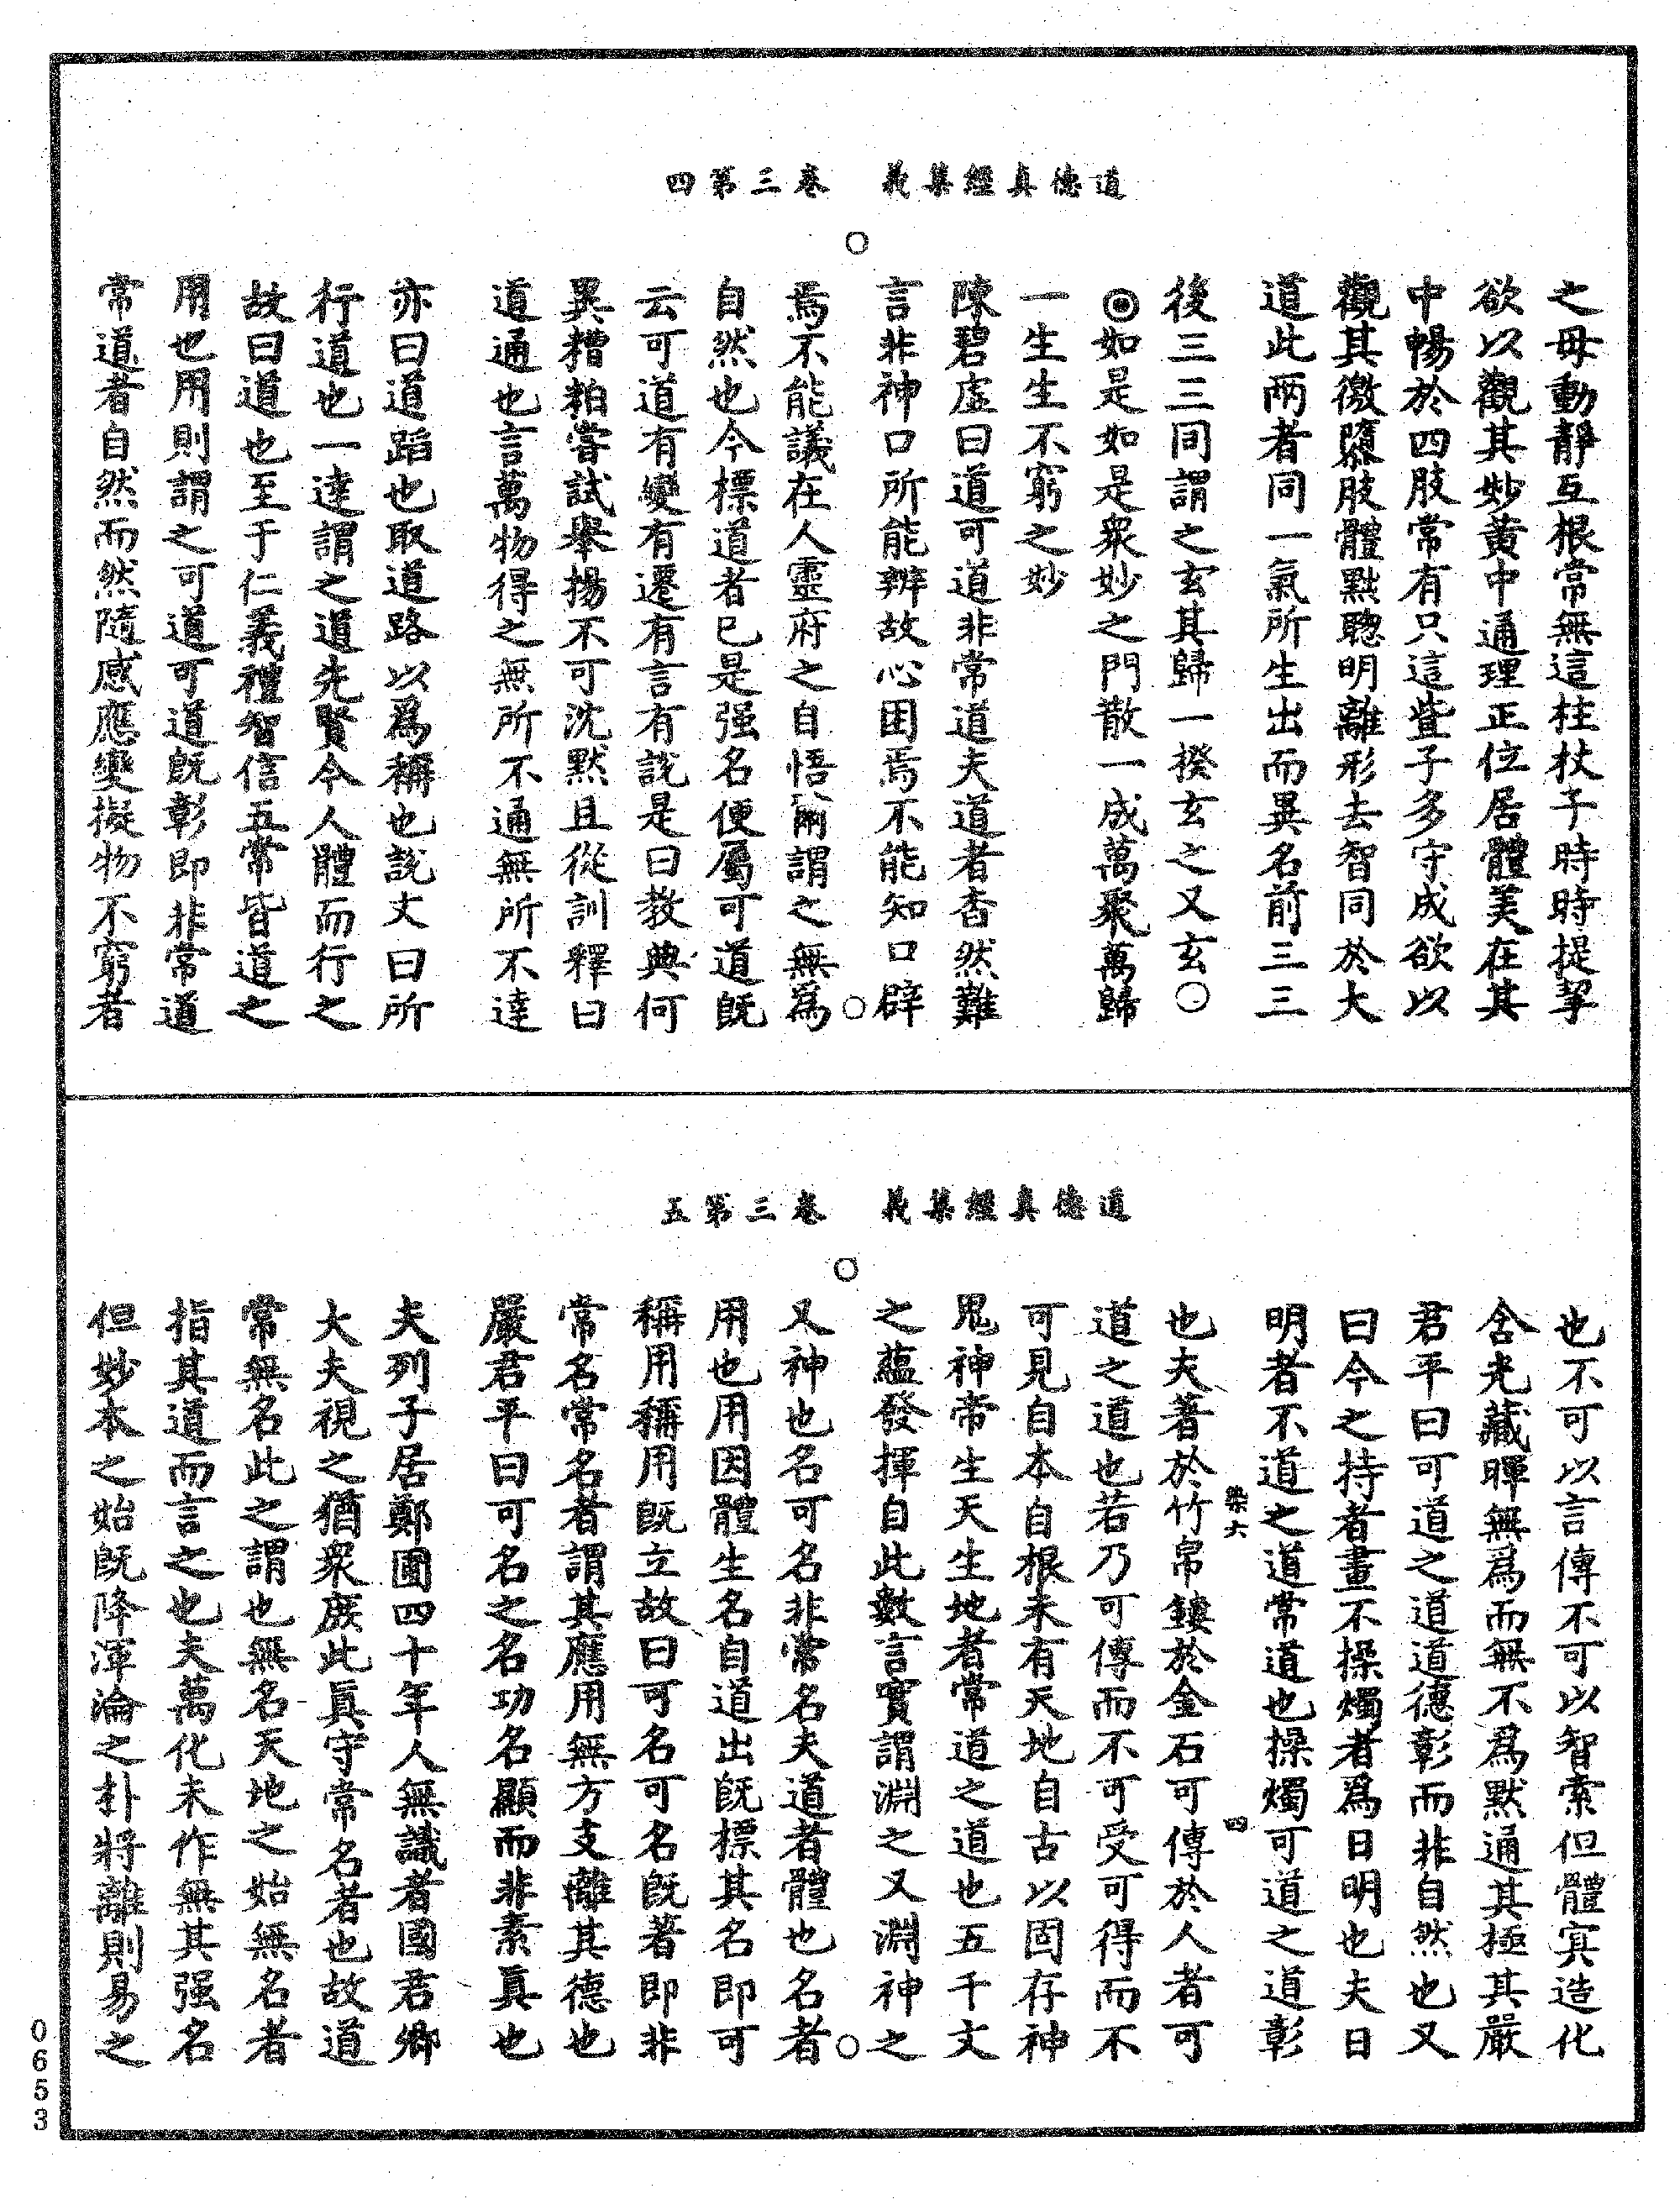 道德真經集義　卷三第四
之母動靜互根常無這柱杖子時時提挈
欲以觀其妙黄中通理正位居體美在其
中暢於四肢常有只這些子多守成欲以
觀其徼隳肢體黜聰明離形去智同於大
道此兩者同一氣所生出而異名前三三
後三三同謂之玄其歸一揆玄之又玄○
◉如是如是衆妙之門散一成萬聚萬歸
一生生不窮之妙
陳碧虛曰道可道非常道夫道者杳然難
言非神口所能辨故心困焉不能知口辟
焉不能議在人靈府之自悟爾謂之無爲
自然也今標道者已是强名便屬可道既
云可道有變有遷有言有說是曰教典何
異糟粕嘗試舉揚不可沈默且從訓釋曰
道通也言萬物得之無所不通無所不達
亦曰道蹈也取道路以爲稱也說文曰所
行道也一達謂之道先賢令人體而行之
故曰道也至于仁義禮智信五常皆道之
用也用則謂之可道可道既彰即非常道
常道者自然而然隨感應變擬物不窮者
道德真經集義　卷三第五
也不可以言傳不可以智索但體冥造化
含光藏暉無爲而無不爲默通其極其嚴
君平曰可道之道道德彰而非自然也又
曰今之持者晝不操燭者爲日明也夫日
明者不道之道常道也操燭可道之道彰
染六　四
也夫著於竹帛鏤於金石可傳於人者可
道之道也若乃可傳而不可受可得而不
可見自本自根未有天地自古以固存神
鬼神帝生天生地者常道之道也五千文
之蘊發揮自此數言實謂淵之又淵神之
又神也名可名非常名夫道者體也名者
用也用因體生名自道出既摽其名即可
稱用稱用既立故曰可名可名既著即非
常名常名者謂其應用無方支離其德也
嚴君平曰可名之名功名顯而非素真也
夫列子居鄭圃四十年人無識者國君卿
大夫視之猶衆庶此真守常名者也故道
常無名此之謂也無名天地之始無名者
指其道而言之也夫萬化未作無其强名
但妙本之始既降渾淪之朴將離則易之
0653